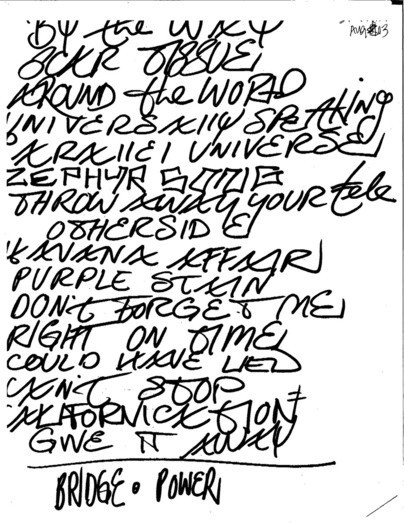 BY the WAY
AUG 13
SCAR TISSUE
AROUND the WORLD
UNIVERSALLY SPEAKING
PARALLEL UNIVERSE
ZEPHYR SONG
THROW AWAY YOUR tele
OTHERSIDE
HAVANA AFFAIR
PURPLE STAIN
DON't FORGET ME
RIGHT ON TIME
COULD HAVE LIED
CAN'T STOP
CALIFORNICATION
GIVE IT AWAY
BRIDGE • POWER